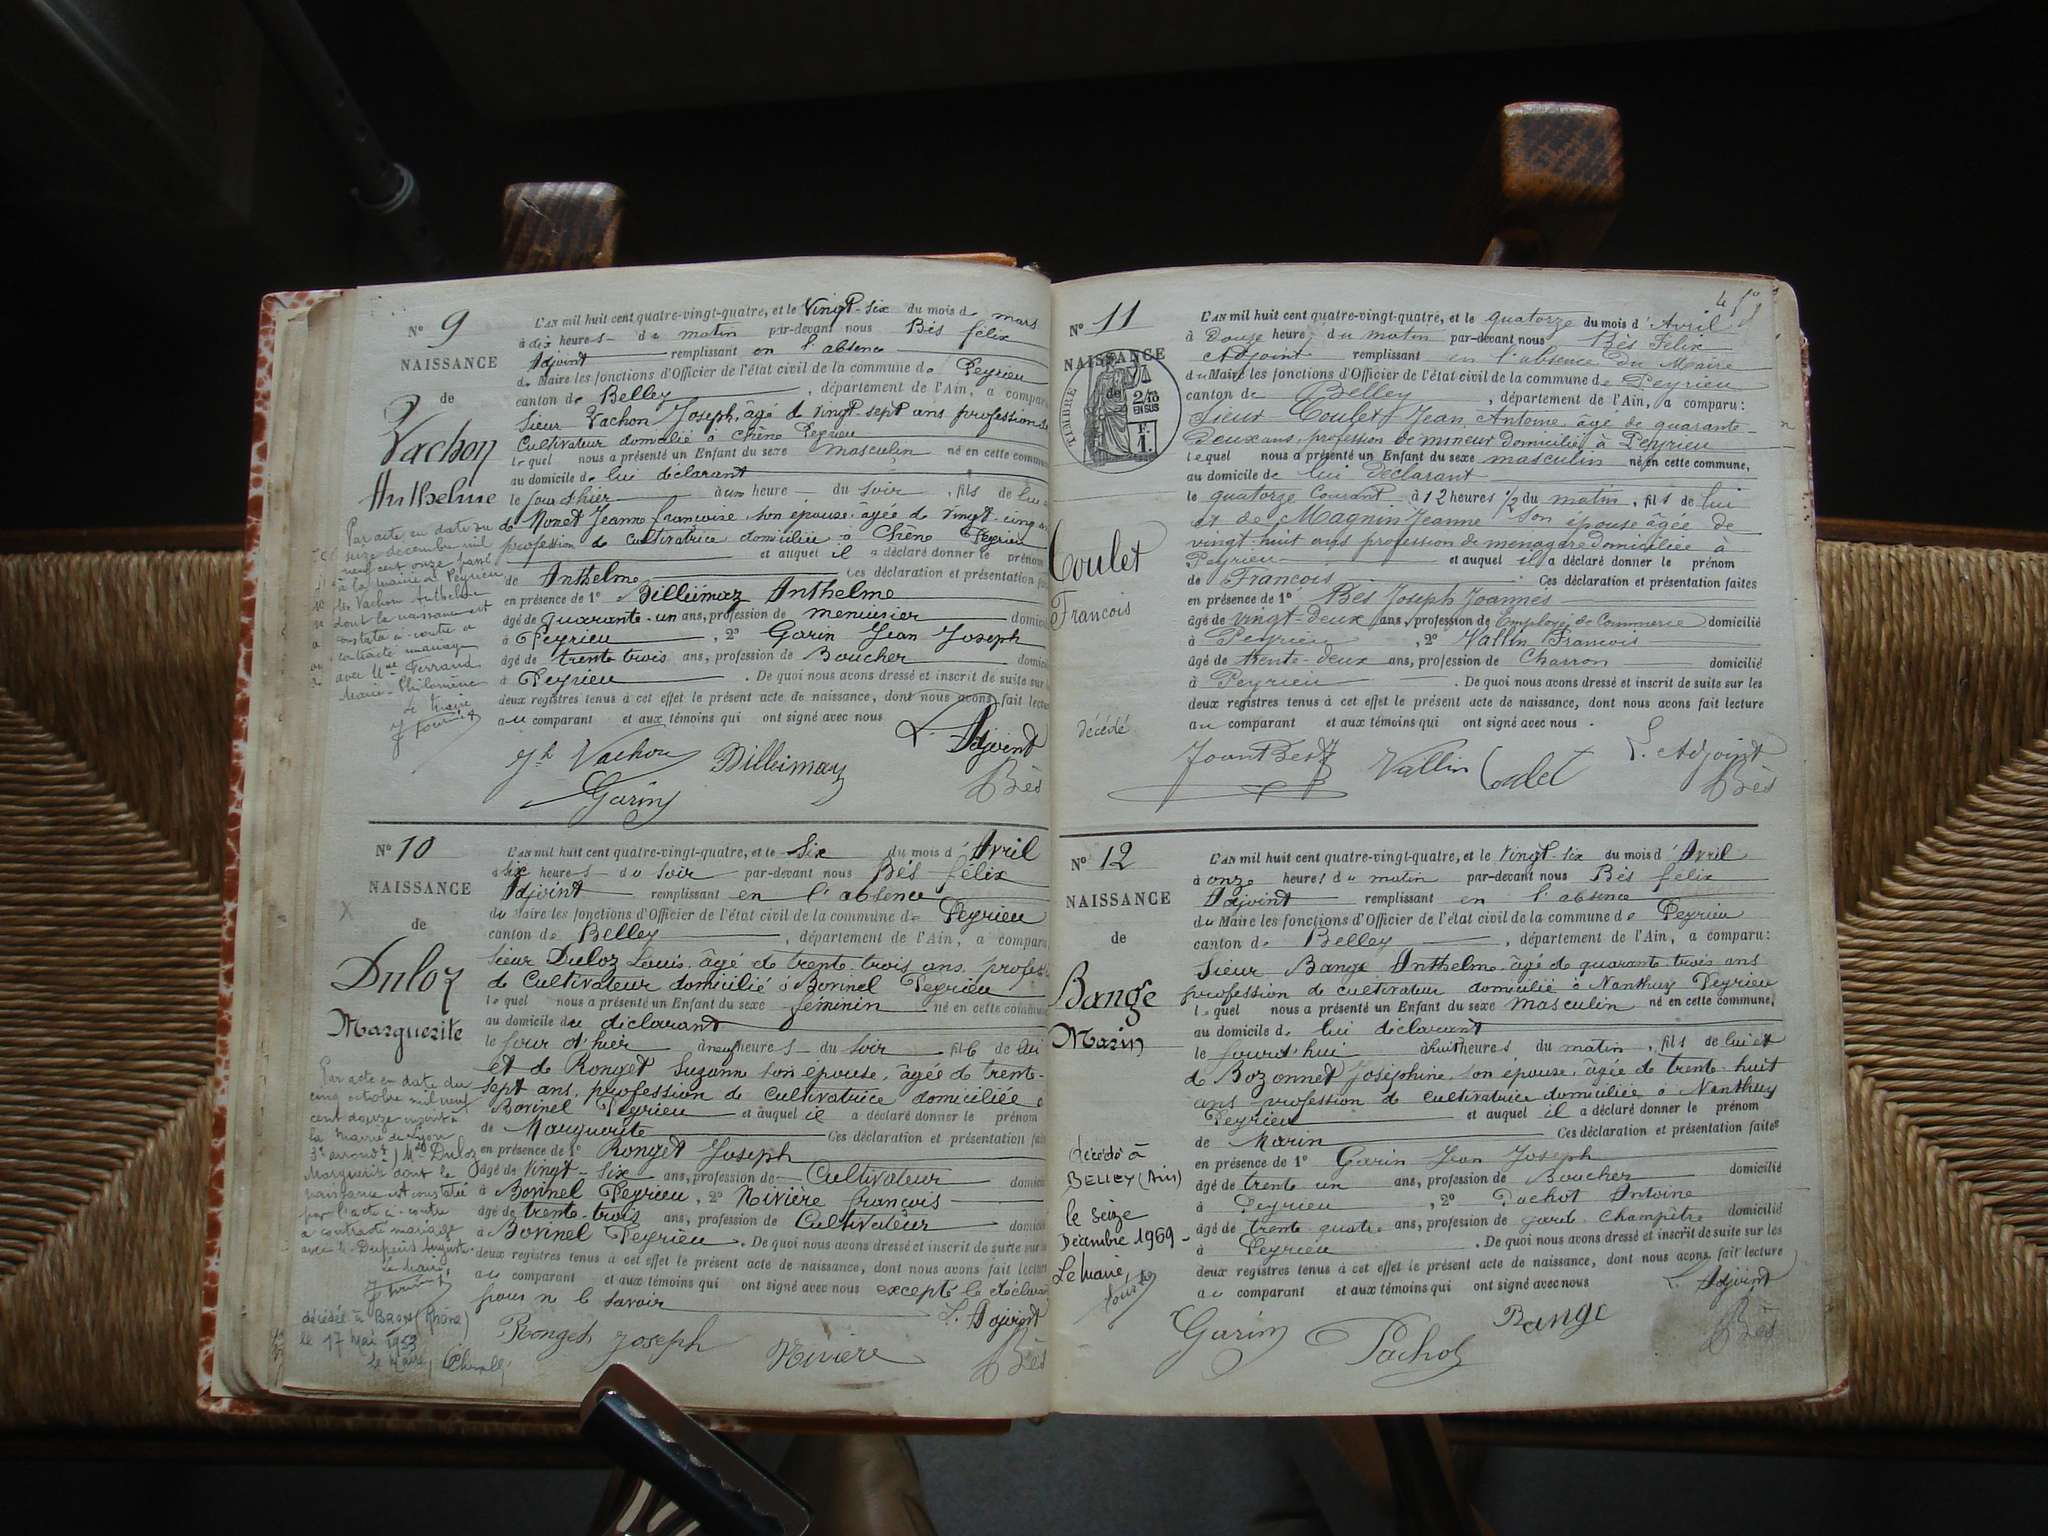 N° 9
NAISSANCE
de
Vachon
Anthelme
Par acte en date du
seize décembre mil
neuf cent onze passé
à la mairie de Peyrieu
le Vachon Anthelme
dont la naissance est
constatée ci-contre a
contracté mariage
avec Mlle Ferrand
Marie-Philomène
Le Maire
L'AN mil huit cent quatre-vingt-quatre, et le Vingt-six du mois de mars
à dix heures du matin par-devant nous Bès félix
Adjoint remplissant en l'absence
du Maire les fonctions d'Officier de l'état civil de la commune de Peyrieu
canton de Belley, département de l'Ain, a comparu
Sieur Vachon Joseph, âgé de vingt-sept ans profession de
Cultivateur domicilié à Chêne Peyrieu
lequel nous a présenté un Enfant du sexe masculin né en cette commune
au domicile de lui déclarant
le jour d'hier à une heure du soir, fils de lui
de Monet Jeanne françoise, son épouse, âgée de vingt-cinq ans
profession de cultivatrice domiciliée à Chêne Peyrieu
et auquel il a déclaré donner le prénom
de Anthelme Ces déclaration et présentation faites
en présence de 1° Billiémaz Anthelme
âgé de quarante-un ans, profession de menuisier domicilié
à Peyrieu, 2° Garin Jean Joseph
âgé de trente trois ans, profession de Boucher domicilié
à Peyrieu. De quoi nous avons dressé et inscrit de suite sur les
deux registres tenus à cet effet le présent acte de naissance, dont nous avons fait lecture
au comparant et aux témoins qui ont signé avec nous
L'Adjoint
Jh Vachon Billiémaz Bès
Garin
N° 10
NAISSANCE
de
Duloz
Marguerite
Par acte en date du
cinq octobre mil neuf
cent douze inscrit à
la Mairie de Lyon
3e arrondt, Mlle Duloz
Marguerite dont la
naissance est constatée
par l'acte ci-contre
a contracté mariage
avec M. Dupuis Auguste
Le Maire,
décédée à BRON (Rhône)
le 17 Mai 1953
le Maire,
L'AN mil huit cent quatre-vingt-quatre, et le six du mois d'Avril
à six heures du soir par-devant nous Bès félix
Adjoint remplissant en l'absence
du Maire les fonctions d'Officier de l'état civil de la commune de Peyrieu
canton de Belley, département de l'Ain, a comparu
Sieur Duloz Louis, âgé de trente-trois ans, profession
de Cultivateur domicilié à Bovinel Peyrieu
lequel nous a présenté un Enfant du sexe féminin né en cette commune
au domicile du déclarant
le jour d'hier à neuf heures du soir fille de lui
et de Ronget Suzanne son épouse, âgée de trente-
sept ans, profession de cultivatrice domiciliée à
Bovinel Peyrieu et auquel il a déclaré donner le prénom
de Marguerite Ces déclaration et présentation faites
en présence de 1° Ronget Joseph
âgé de vingt-six ans, profession de Cultivateur domicilié
à Bovinel Peyrieu, 2° Rivière françois
âgé de trente-trois ans, profession de Cultivateur domicilié
à Bovinel Peyrieu. De quoi nous avons dressé et inscrit de suite sur les
deux registres tenus à cet effet le présent acte de naissance, dont nous avons fait lecture
au comparant et aux témoins qui ont signé avec nous excepté le déclarant
pour ne le savoir
L'Adjoint
Ronget Joseph Rivière Bès
4
N° 11
NAISSANCE
de
TIMBRE
2/10 EN SUS
F. 1.
Coulet
François
décédé
L'AN mil huit cent quatre-vingt-quatre, et le quatorze du mois d'Avril
à Douze heures du matin par-devant nous Bès Félix
Adjoint remplissant en l'absence du Maire
du Maire les fonctions d'Officier de l'état civil de la commune de Peyrieu
canton de Belley, département de l'Ain, a comparu :
Sieur Coulet Jean Antoine, âgé de quarante-
deux ans, profession de mineur domicilié à Peyrieu
lequel nous a présenté un Enfant du sexe masculin né en cette commune,
au domicile de lui déclarant
le quatorze courant à 12 heures 1/2 du matin, fils de lui
et de Magnin Jeanne son épouse âgée de
vingt-huit ans profession de menagère domiciliée à
Peyrieu et auquel il a déclaré donner le prénom
de François Ces déclaration et présentation faites
en présence de 1° Bès Joseph Joannès
âgé de vingt-deux ans, profession de Employé de Commerce domicilié
à Peyrieu, 2° Vallin François
âgé de trente-deux ans, profession de Charron domicilié
à Peyrieu. De quoi nous avons dressé et inscrit de suite sur les
deux registres tenus à cet effet le présent acte de naissance, dont nous avons fait lecture
au comparant et aux témoins qui ont signé avec nous.
L'Adjoint
Vallin Coulet Bès
N° 12
NAISSANCE
de
Bange
Marin
décédé à
BELLEY (Ain)
le seize
Décembre 1969
Le Maire,
L'AN mil huit cent quatre-vingt-quatre, et le vingt-six du mois d'Avril
à onze heures du matin par-devant nous Bès félix
Adjoint remplissant en l'absence
du Maire les fonctions d'Officier de l'état civil de la commune de Peyrieu
canton de Belley, département de l'Ain, a comparu :
Sieur Bange Anthelme, âgé de quarante-trois ans
profession de cultivateur domicilié à Nanthuy Peyrieu
lequel nous a présenté un Enfant du sexe masculin né en cette commune,
au domicile de lui déclarant
le jourd'hui à huit heures du matin, fils de lui et
de Bozonnet Joséphine, son épouse, âgée de trente-huit
ans profession de cultivatrice domiciliée à Nanthuy
Peyrieu et auquel il a déclaré donner le prénom
de Marin Ces déclaration et présentation faites
en présence de 1° Garin Jean Joseph
âgé de trente un ans, profession de Boucher domicilié
à Peyrieu, 2° Pachot Antoine
âgé de trente quatre ans, profession de garde champêtre domicilié
à Peyrieu. De quoi nous avons dressé et inscrit de suite sur les
deux registres tenus à cet effet le présent acte de naissance, dont nous avons fait lecture
au comparant et aux témoins qui ont signé avec nous
L'Adjoint
Garin Pachot Bange Bès